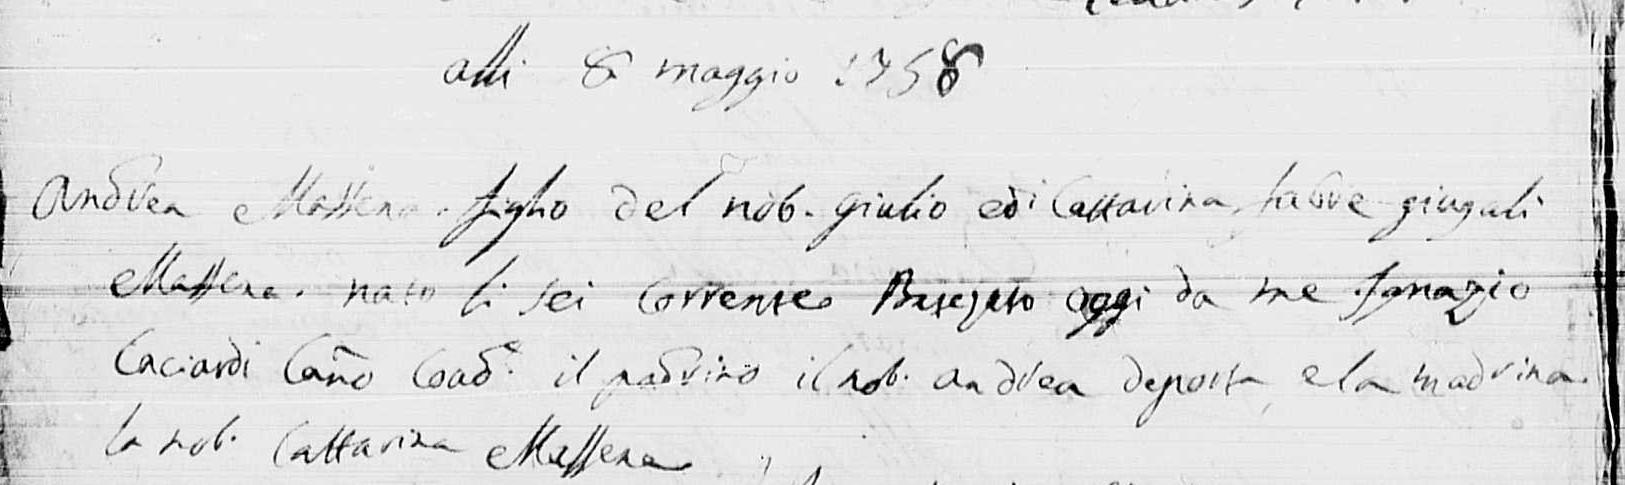 alli 8 maggio 1758
Andrea Massena. figlio del nob. giulio edi Cattarina fabre giugali
Massena. nato li sei Corrente Batezato oggi da me Ignazio
Caciardi Can̄o Coad.e il padrino il nob. andrea deporta e la madrina
la nob. Cattarina Massena